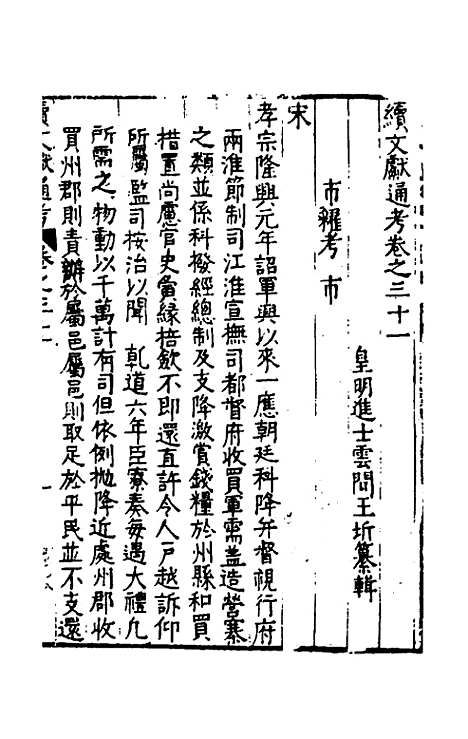 續文獻通考卷之三十一
皇明進士雲間王圻纂輯
市糴考 市
宋
孝宗隆興元年詔軍興以來一應朝廷科降并督視行府
兩淮節制司江淮宣撫司都督府收買軍需蓋造營寨
之類並係科撥經總制及支降激賞錢糧於州縣和買
措置尚慮官吏夤緣掊斂不即還直許令人戶越訴仰
所屬監司按治以聞 乹道六年臣寮奏每遇大禮凢
所需之物動以千萬計有司但依例拋降近處州郡收
買州郡則責辦於屬邑屬邑則取足於平民並不支還